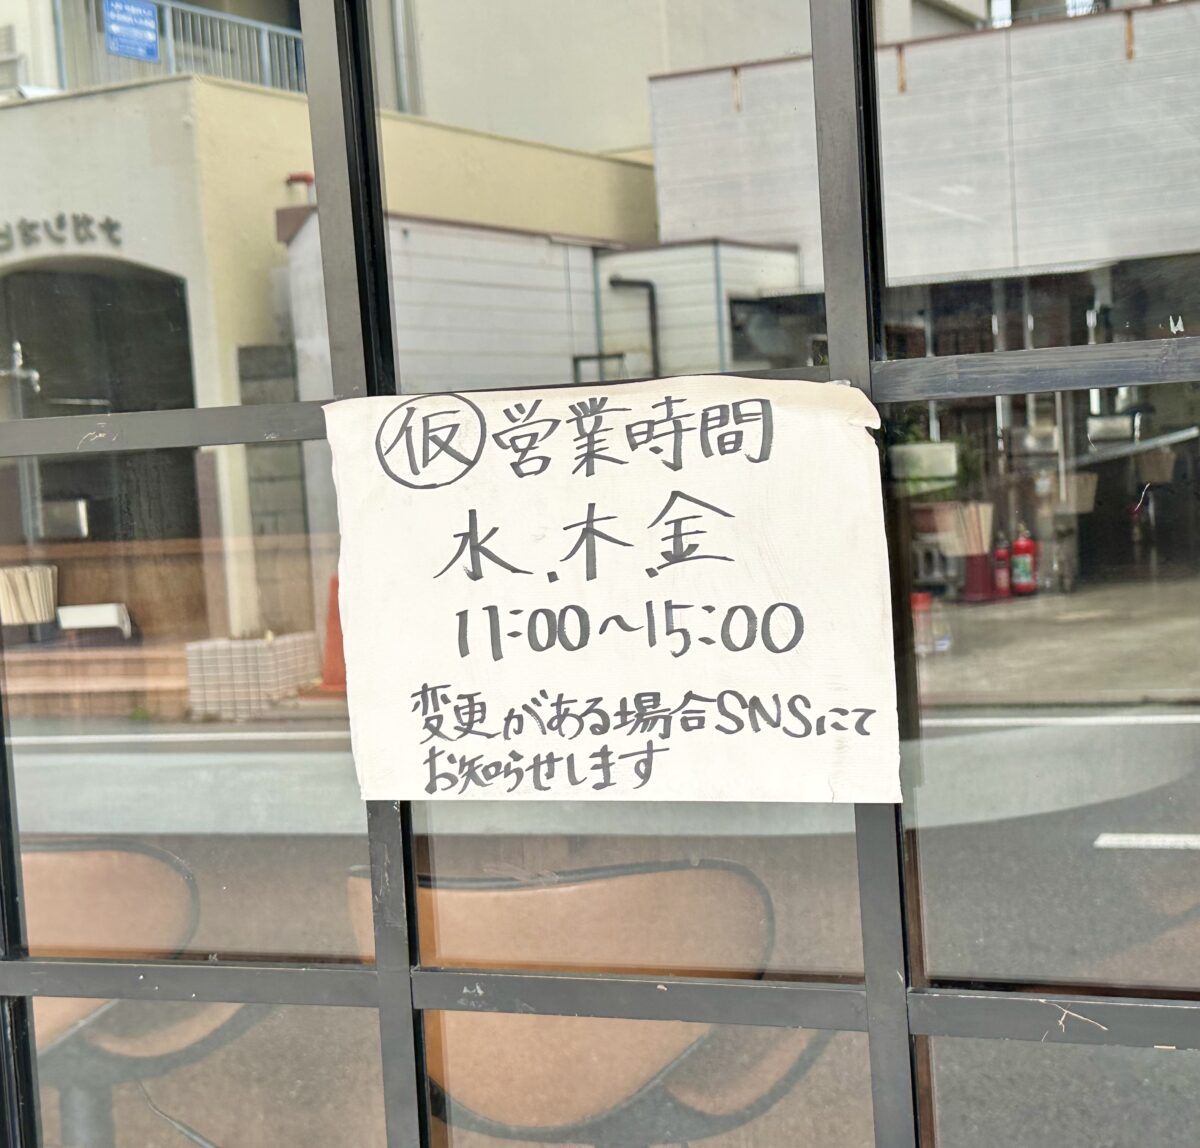 仮 営業時間
水.木.金
11:00〜15:00
変更がある場合SNSにて
お知らせします